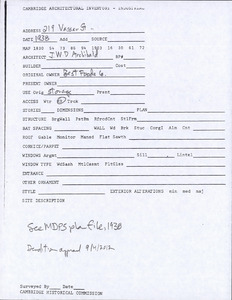 CAMBRIDGE ARCHITECTURAL INVENTORY - INDUSTRIAL
ADDRESS 219 Vassar St.
DATE 1938 Ass SOURCE
MAP 1830 54 73 86 94 1903 16 30 61 72
ARCHITECT J.W.D. Archibald BP#
BUILDER Cost
ORIGINAL OWNER Best Foods Co.
PRESENT OWNER
USE Orig storage Present
ACCESS Wtr RR Truk
STORIES DIMENSIONS PLAN
STRUCTURE BrgWall PstBm RfrcdCnt StlFrm
BAY SPACING WALL Wd Brk Stuc CorgI Alm Cnt
ROOF Gable Monitor Mansd Flat Sawth
CORNICE/PARPET
WINDOWS Argmt Sill Lintel
WINDOW TYPE WdSash MtlCasmt FltGls
ENTRANCE
OTHER ORNAMENT
STYLE EXTERIOR ALTERATIONS min med maj
SITE DESCRIPTION
See MDPS plan file, 1938
Demolition approved 9/11/2012
Surveyed By Date
CAMBRIDGE HISTORICAL COMMISSION